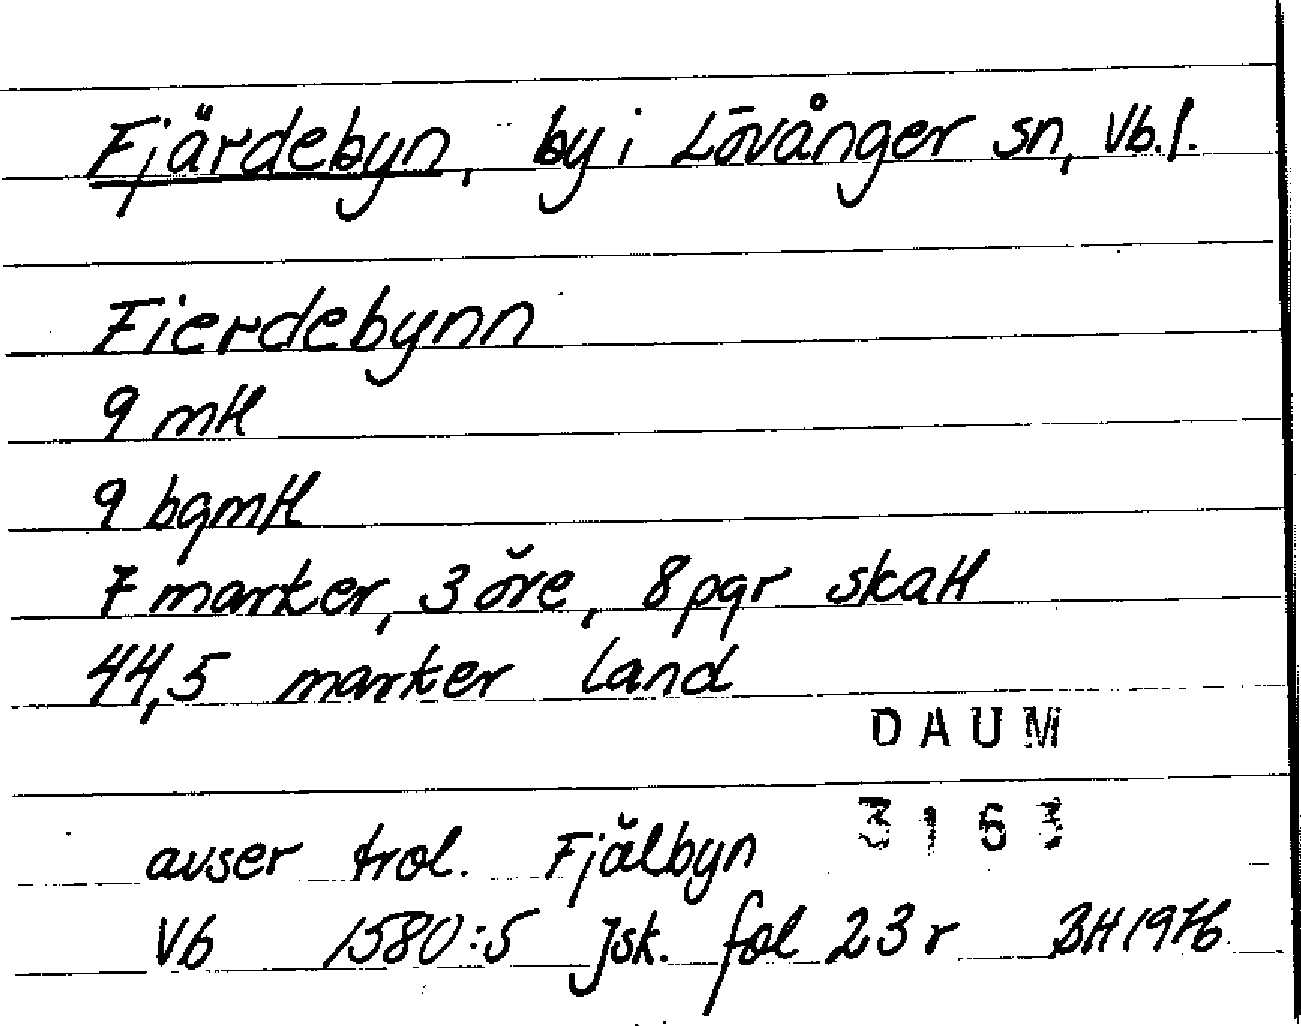 Fjärdebyn, by i Lövånger sn, Vb.l.
Fierdebynn
9 mtl
9 bgmtl
7 marker, 3 öre, 8 pgr skatt
44,5 marker land
DAUM
3163
avser trol. Fjälbyn
Vb 1580:5 Jsk. fol 23 r BH 1976